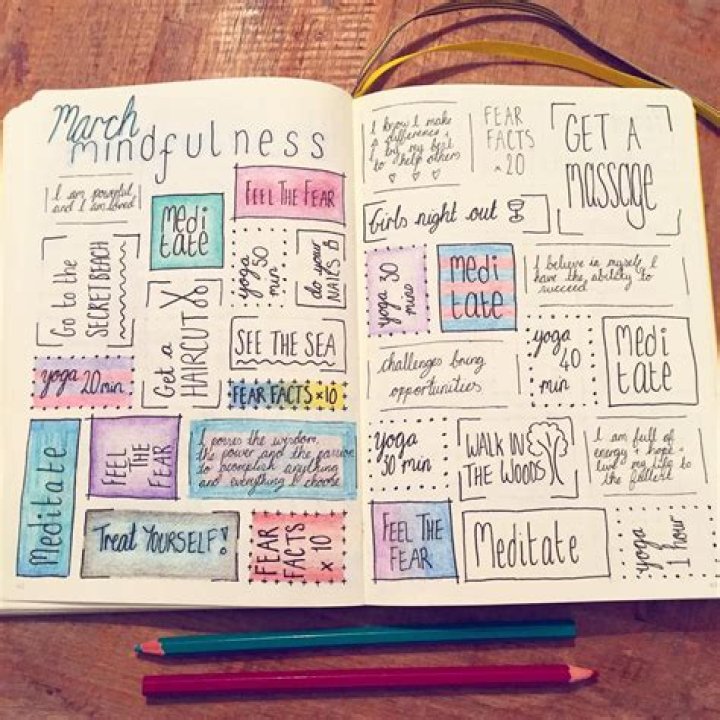 March
mindfulness
I am powerful
and I am loved
Medi
tate
FEEL THE FEAR
Go to the
SECRET BEACH
yoga 50
min
do your
NAILS
Get a
HAIRCUT
SEE THE SEA
yoga 20 min
FEAR FACTS × 10
Meditate
FEEL
THE
FEAR
I posses the wisdom,
the power and the passion
to acomplish anything
and everything I choose
Treat YOURSELF!
FEAR
FACTS
× 10
I know I make
a difference +
I try my best
to help others
FEAR
FACTS
× 20
GET A
massage
Girls night out
yoga 30
mins
Medi
tate
I believe in myself I
have the ability to
succeed
challenges bring
opportunities
yoga
40
min
Medi
tate
yoga
30 min
WALK IN
THE WOODS
I am full of
energy + hope +
live my life to
the fullest
FEEL THE
FEAR
Meditate
yoga
1 hour